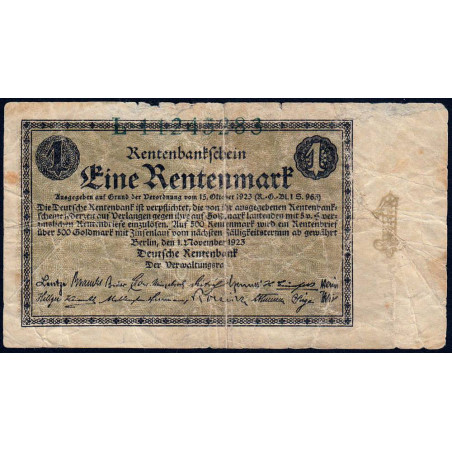 L 11243283
1 1
Rentenbankschein
Eine Rentenmark
Ausgegeben auf Grund der Verordnung vom 15. Oktober 1923 (R.-G.-Bl. I S. 963)
Die Deutsche Rentenbank ist verpflichtet, die von ihr ausgegebenen Rentenbank-
scheine jederzeit auf Verlangen gegen ihre auf Goldmark lautenden mit 5 v. H. ver-
zinslichen Rentenbriefe einzulösen. Auf 500 Rentenmark wird ein Rentenbrief
über 500 Goldmark mit Zinsenlauf vom nächsten Fälligkeitstermin ab gewährt
Berlin, den 1. November 1923
Deutsche Rentenbank
Der Verwaltungsrat